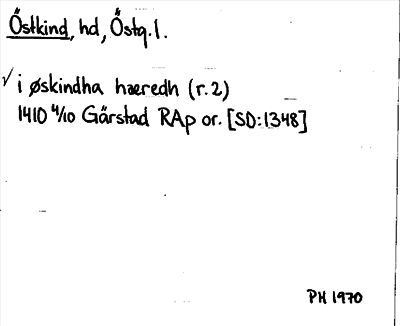 Östkind, hd, Östg. l.
√ i øskindha hæredh (r. 2)
1410 4/10 Gärstad RAp or. [SD:1348]
PH 1970